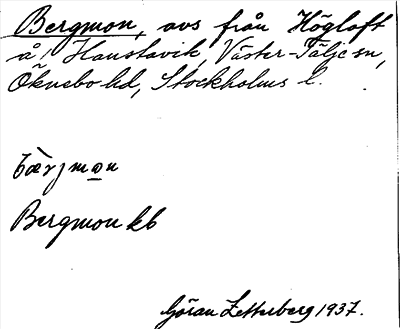 Bergmon, avs från Högloft
å Hanstavik, Väster-Tälje sn,
Öknebo hd, Stockholms l.
bærjmon
Bergmon kb
Göran Zetterberg 1937.